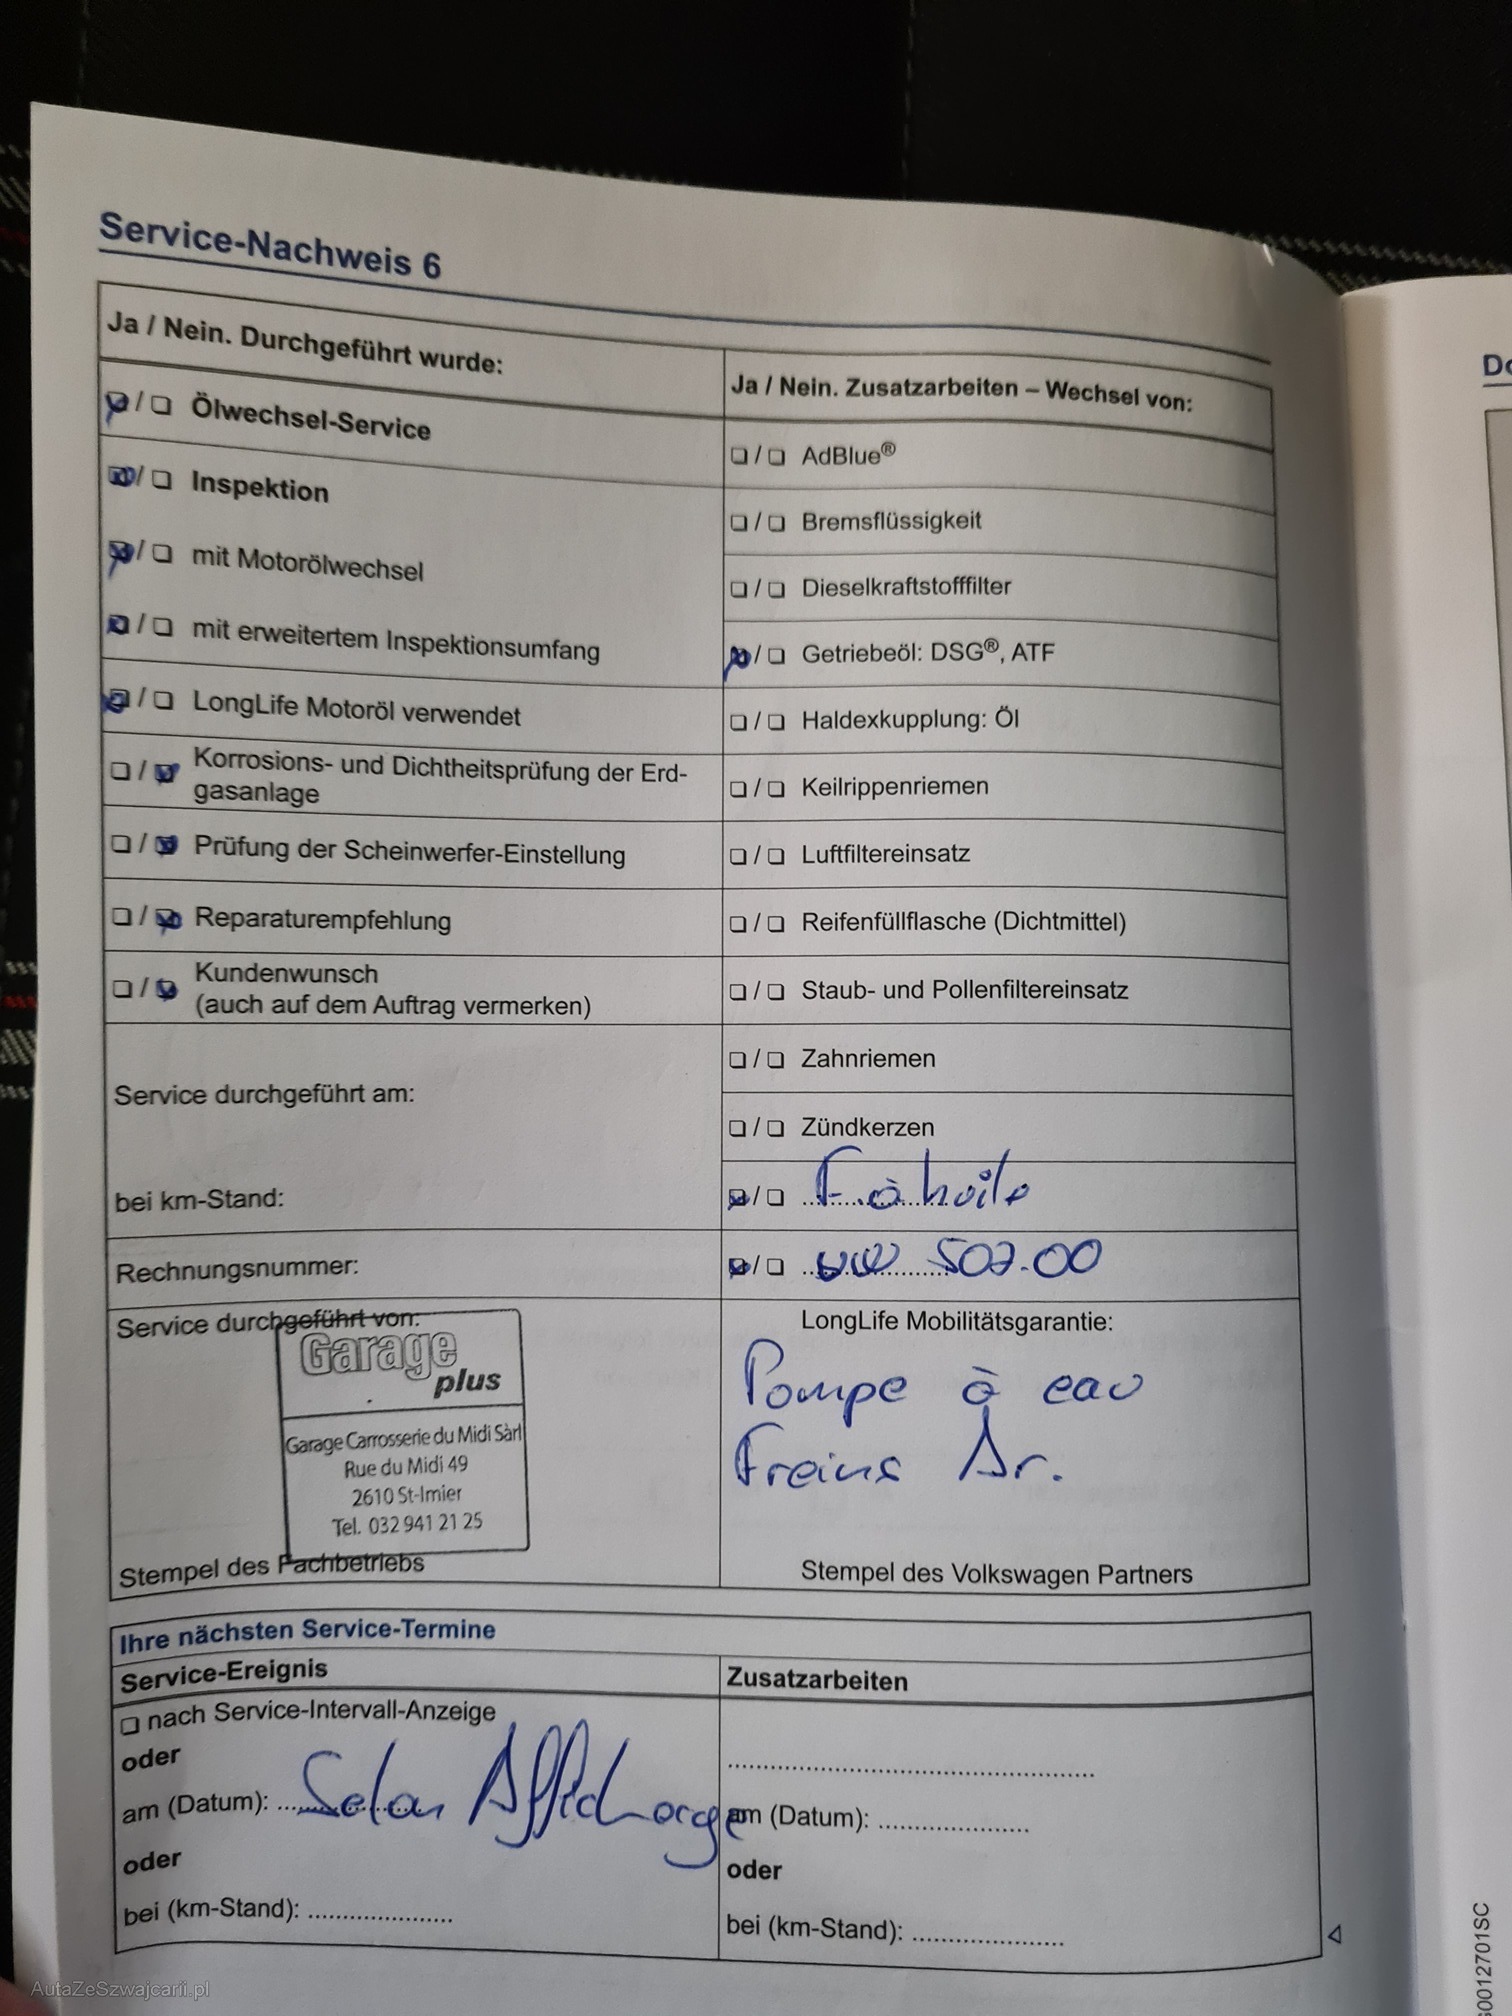 Service-Nachweis 6
Ja / Nein. Durchgeführt wurde:
/ Ölwechsel-Service
/ Inspektion
/ mit Motorölwechsel
/ mit erweitertem Inspektionsumfang
/ LongLife Motoröl verwendet
/ Korrosions- und Dichtheitsprüfung der Erd-
gasanlage
/ Prüfung der Scheinwerfer-Einstellung
/ Reparaturempfehlung
/ Kundenwunsch
(auch auf dem Auftrag vermerken)
Service durchgeführt am:
bei km-Stand:
Rechnungsnummer:
Service durchgeführt von:
Garage
plus
Garage Carrosserie du Midi Sàrl
Rue du Midi 49
2610 St-Imier
Tel. 032 941 21 25
Stempel des Fachbetriebs
Ja / Nein. Zusatzarbeiten – Wechsel von:
/ AdBlue®
/ Bremsflüssigkeit
/ Dieselkraftstofffilter
/ Getriebeöl: DSG®, ATF
/ Haldexkupplung: Öl
/ Keilrippenriemen
/ Luftfiltereinsatz
/ Reifenfüllflasche (Dichtmittel)
/ Staub- und Pollenfiltereinsatz
/ Zahnriemen
/ Zündkerzen
/ F. à huile
/ VW 507.00
LongLife Mobilitätsgarantie:
Pompe à eau
Freins Ar.
Stempel des Volkswagen Partners
Ihre nächsten Service-Termine
Service-Ereignis
nach Service-Intervall-Anzeige
oder
am (Datum): Selon Affichage
oder
bei (km-Stand): ....................
Zusatzarbeiten
am (Datum): ....................
oder
bei (km-Stand): ....................
AutaZeSzwajcarii.pl